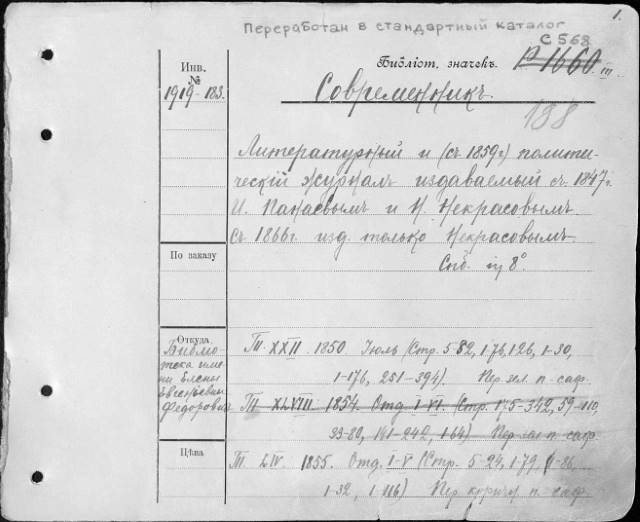 1.
Переработан в стандартный каталог
С 568
Инв.
№
1919-183.
Библіот. значекъ. Р 1660. III.
Современникъ.
188
Литературный и (съ 1859г) полити-
ческій журналъ издаваемый съ 1847г.
И. Панаевымъ и Н. Некрасовымъ.
Съ 1866г. изд. только Некрасовымъ.
Спб. in 8°.
По заказу
Откуда
Библіо-
тека име-
ни Елены
Евгеньевны
Федорович
Т. XXII. 1850. Іюль (Стр. 582, 1-76, 126, 1-30,
1-176, 251-394) Пер. зел. п. саф.
Т. XLVIII. 1854. Отд. I-VI. (Стр. 175-342, 59-110,
33-82, 141-242, 1-64) Пер. зел п. саф.
Цѣна
Т. LIV. 1855. Отд. I-V (Стр. 5-24, 1-79, 1-86,
1-32, 1-116) Пер. коричн п. саф.